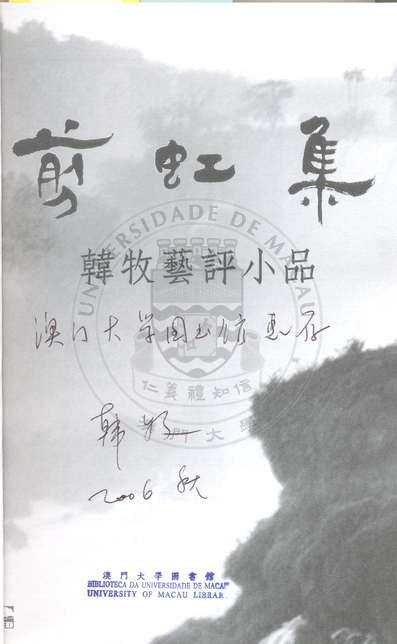 剪虹集
UNIVERSIDADE DE MACAU
韓牧藝評小品
澳门大学图书馆惠存
仁義禮知信
澳門大學
韩牧
2006 秋
澳門大學圖書館
BIBLIOTECA DA UNIVERSIDADE DE MACAU
UNIVERSITY OF MACAU LIBRARY